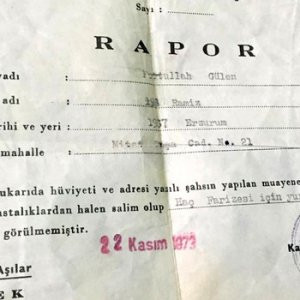 Sayı :
RAPOR
yadı : Fetullah Gülen
adı : Ramiz
rihi ve yeri : 1937 Erzurum
mahalle : Cad. No. 21
ukarıda hüviyeti ve adresi yazılı şahsın yapılan muayene
stalıklardan halen salim olup Haç Farizesi için yu
görülmemiştir.
22 Kasım 1973
Ka
Aşılar
EK